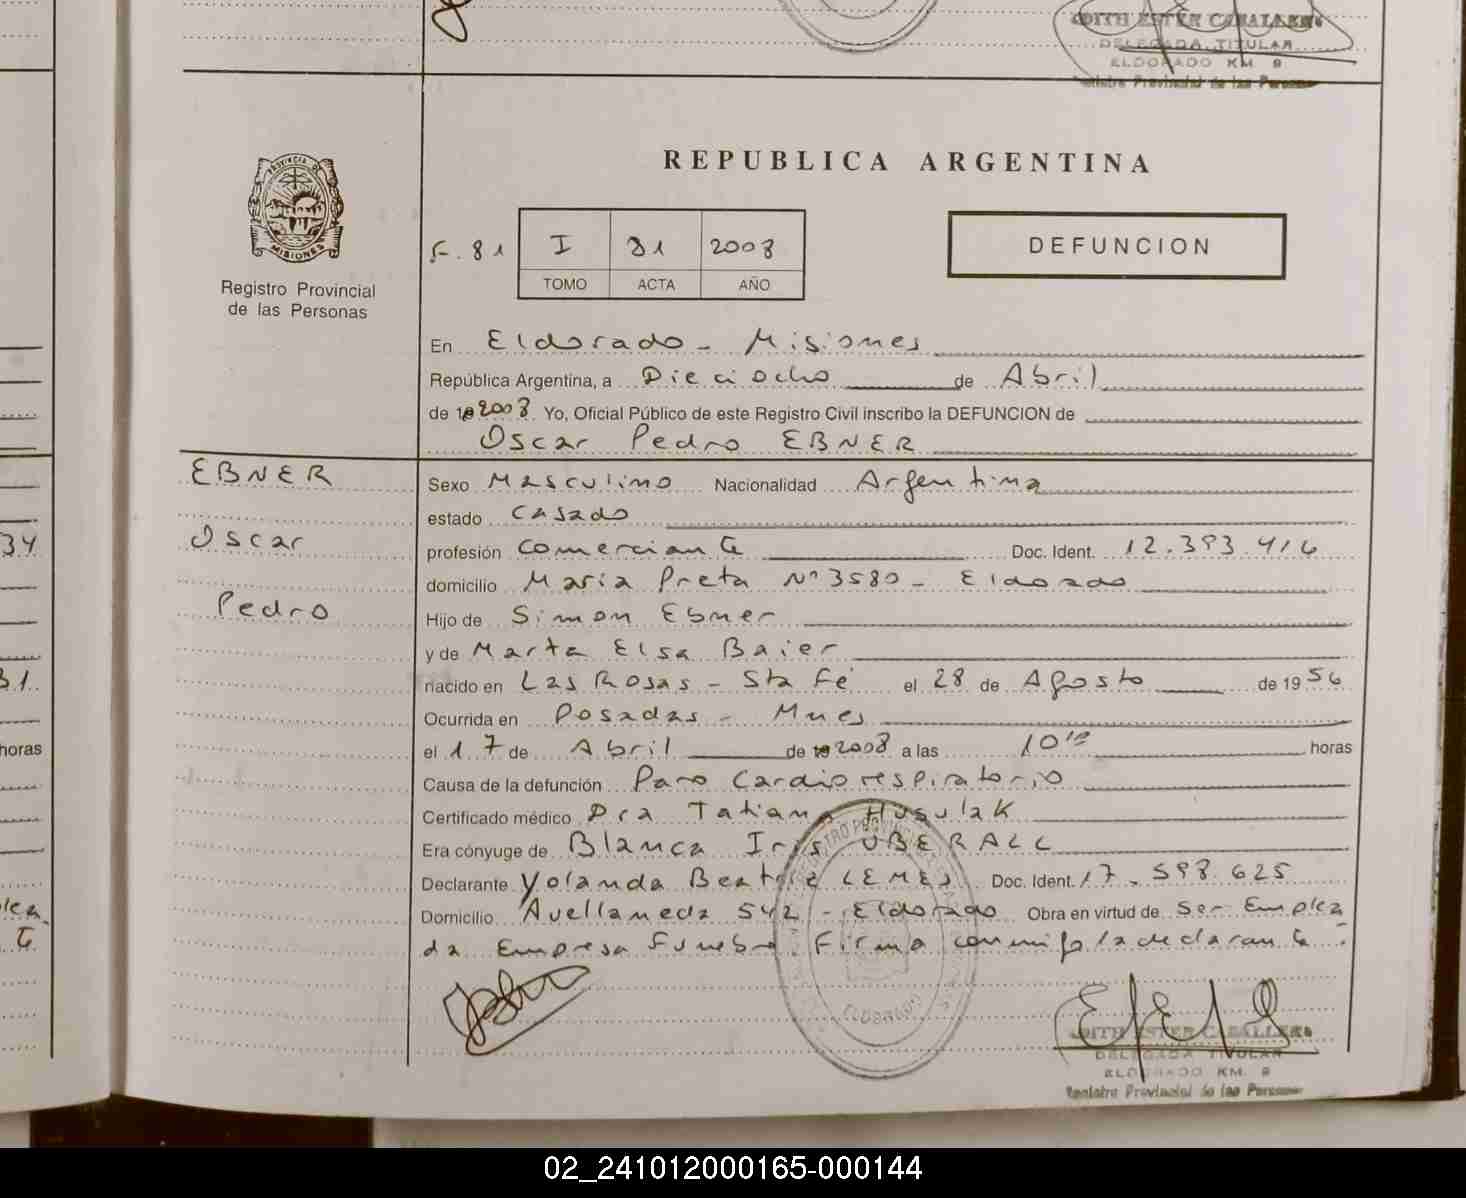 EDITH ESTER CABALLERO
DELEGADA TITULAR
ELDORADO KM. 9
Registro Provincial de las Personas
PROVINCIA DE
MISIONES
Registro Provincial
de las Personas
REPUBLICA ARGENTINA
F. 81
I 81 2008
TOMO ACTA AÑO
DEFUNCION
En Eldorado - Misiones
República Argentina, a Dieciocho de Abril
de 19 2008 Yo, Oficial Público de este Registro Civil inscribo la DEFUNCION de
Oscar Pedro EBNER
EBNER
Oscar
Pedro
Sexo Masculino Nacionalidad Argentina
estado Casado
profesión Comerciante Doc. Ident. 12.393.416
domicilio Maria Preta Nº 3580 - Eldorado
Hijo de Simon Ebner
y de Marta Elsa Baier
nacido en Las Rosas - Sta Fé el 28 de Agosto de 19 56
Ocurrida en Posadas - Mnes
el 17 de Abril de 19 2008 a las 10 10 horas
Causa de la defunción Paro Cardiorespiratorio
Certificado médico Dra Tatiana Husulak
Era cónyuge de Blanca Iris UBERALL
Declarante Yolanda Beatriz LEMES Doc. Ident. 17.598.625
Domicilio Avellaneda 542 - Eldorado Obra en virtud de Ser Emplea
da Empresa Funebre Firma conmigo la declarante.-
ELDORADO
EDITH ESTER CABALLERO
DELEGADA TITULAR
ELDORADO KM. 9
Registro Provincial de las Personas
34
31
horas
plea
te
02_241012000165-000144